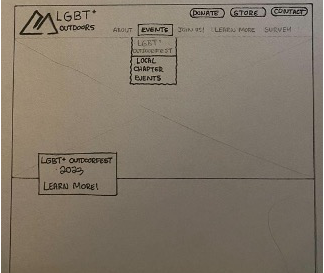 LGBT+
OUTDOORS
DONATE STORE CONTACT
ABOUT EVENTS JOIN US! LEARN MORE SURVEY
LGBT+
OUTDOORFEST
LOCAL
CHAPTER
EVENTS
LGBT+ OUTDOORFEST
2023
LEARN MORE!